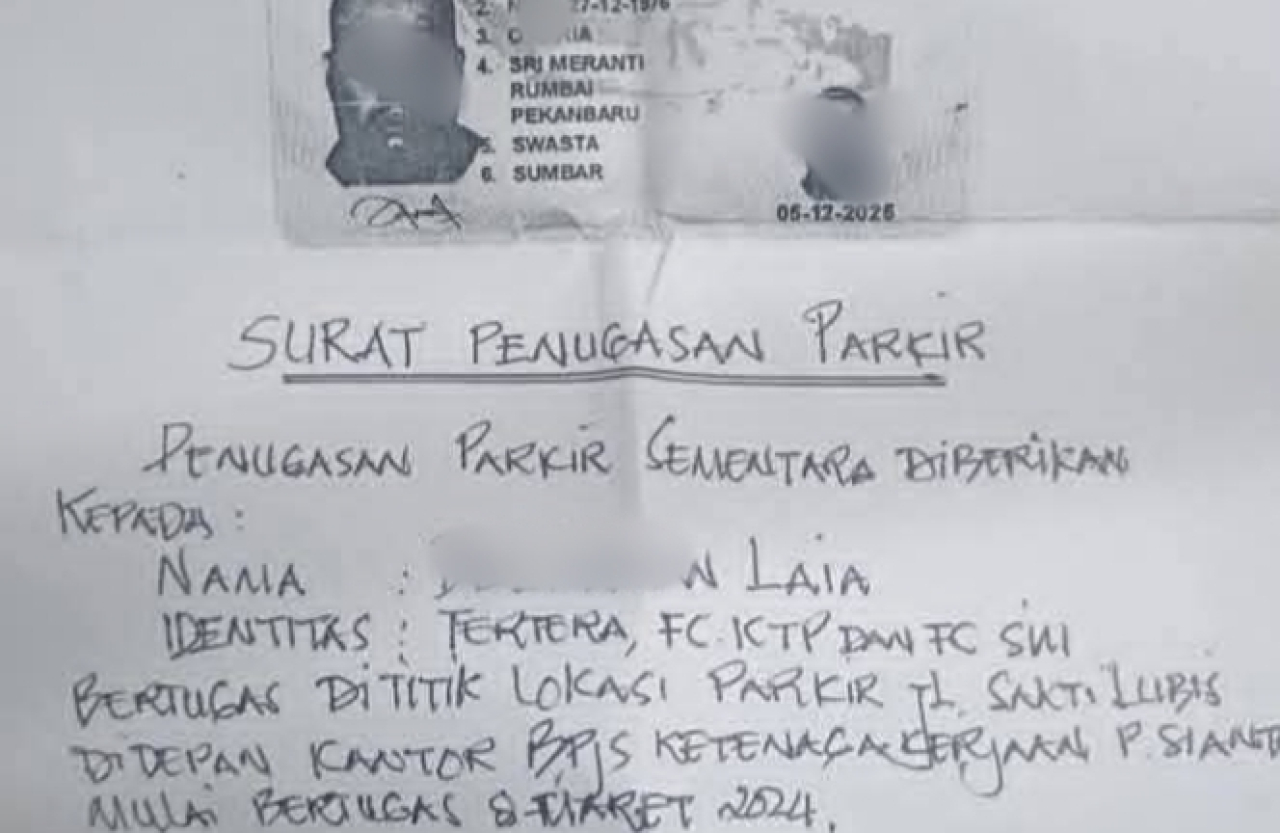 2. 27-12-1976
3. IA
4. SRI MERANTI
RUMBAI
PEKANBARU
5. SWASTA
6. SUMBAR
05-12-2025
SURAT PENUGASAN PARKIR
PENUGASAN PARKIR SEMENTARA DIBERIKAN
KEPADA :
NAMA : N LAIA
IDENTITAS : TERTERA, FC.KTP DAN FC SIM
BERTUGAS DI TITIK LOKASI PARKIR JL. SAKTI LUBIS
DIDEPAN KANTOR BPJS KETENAGAKERJAAN P. SIANT
MULAI BERTUGAS 8 MARET 2024.